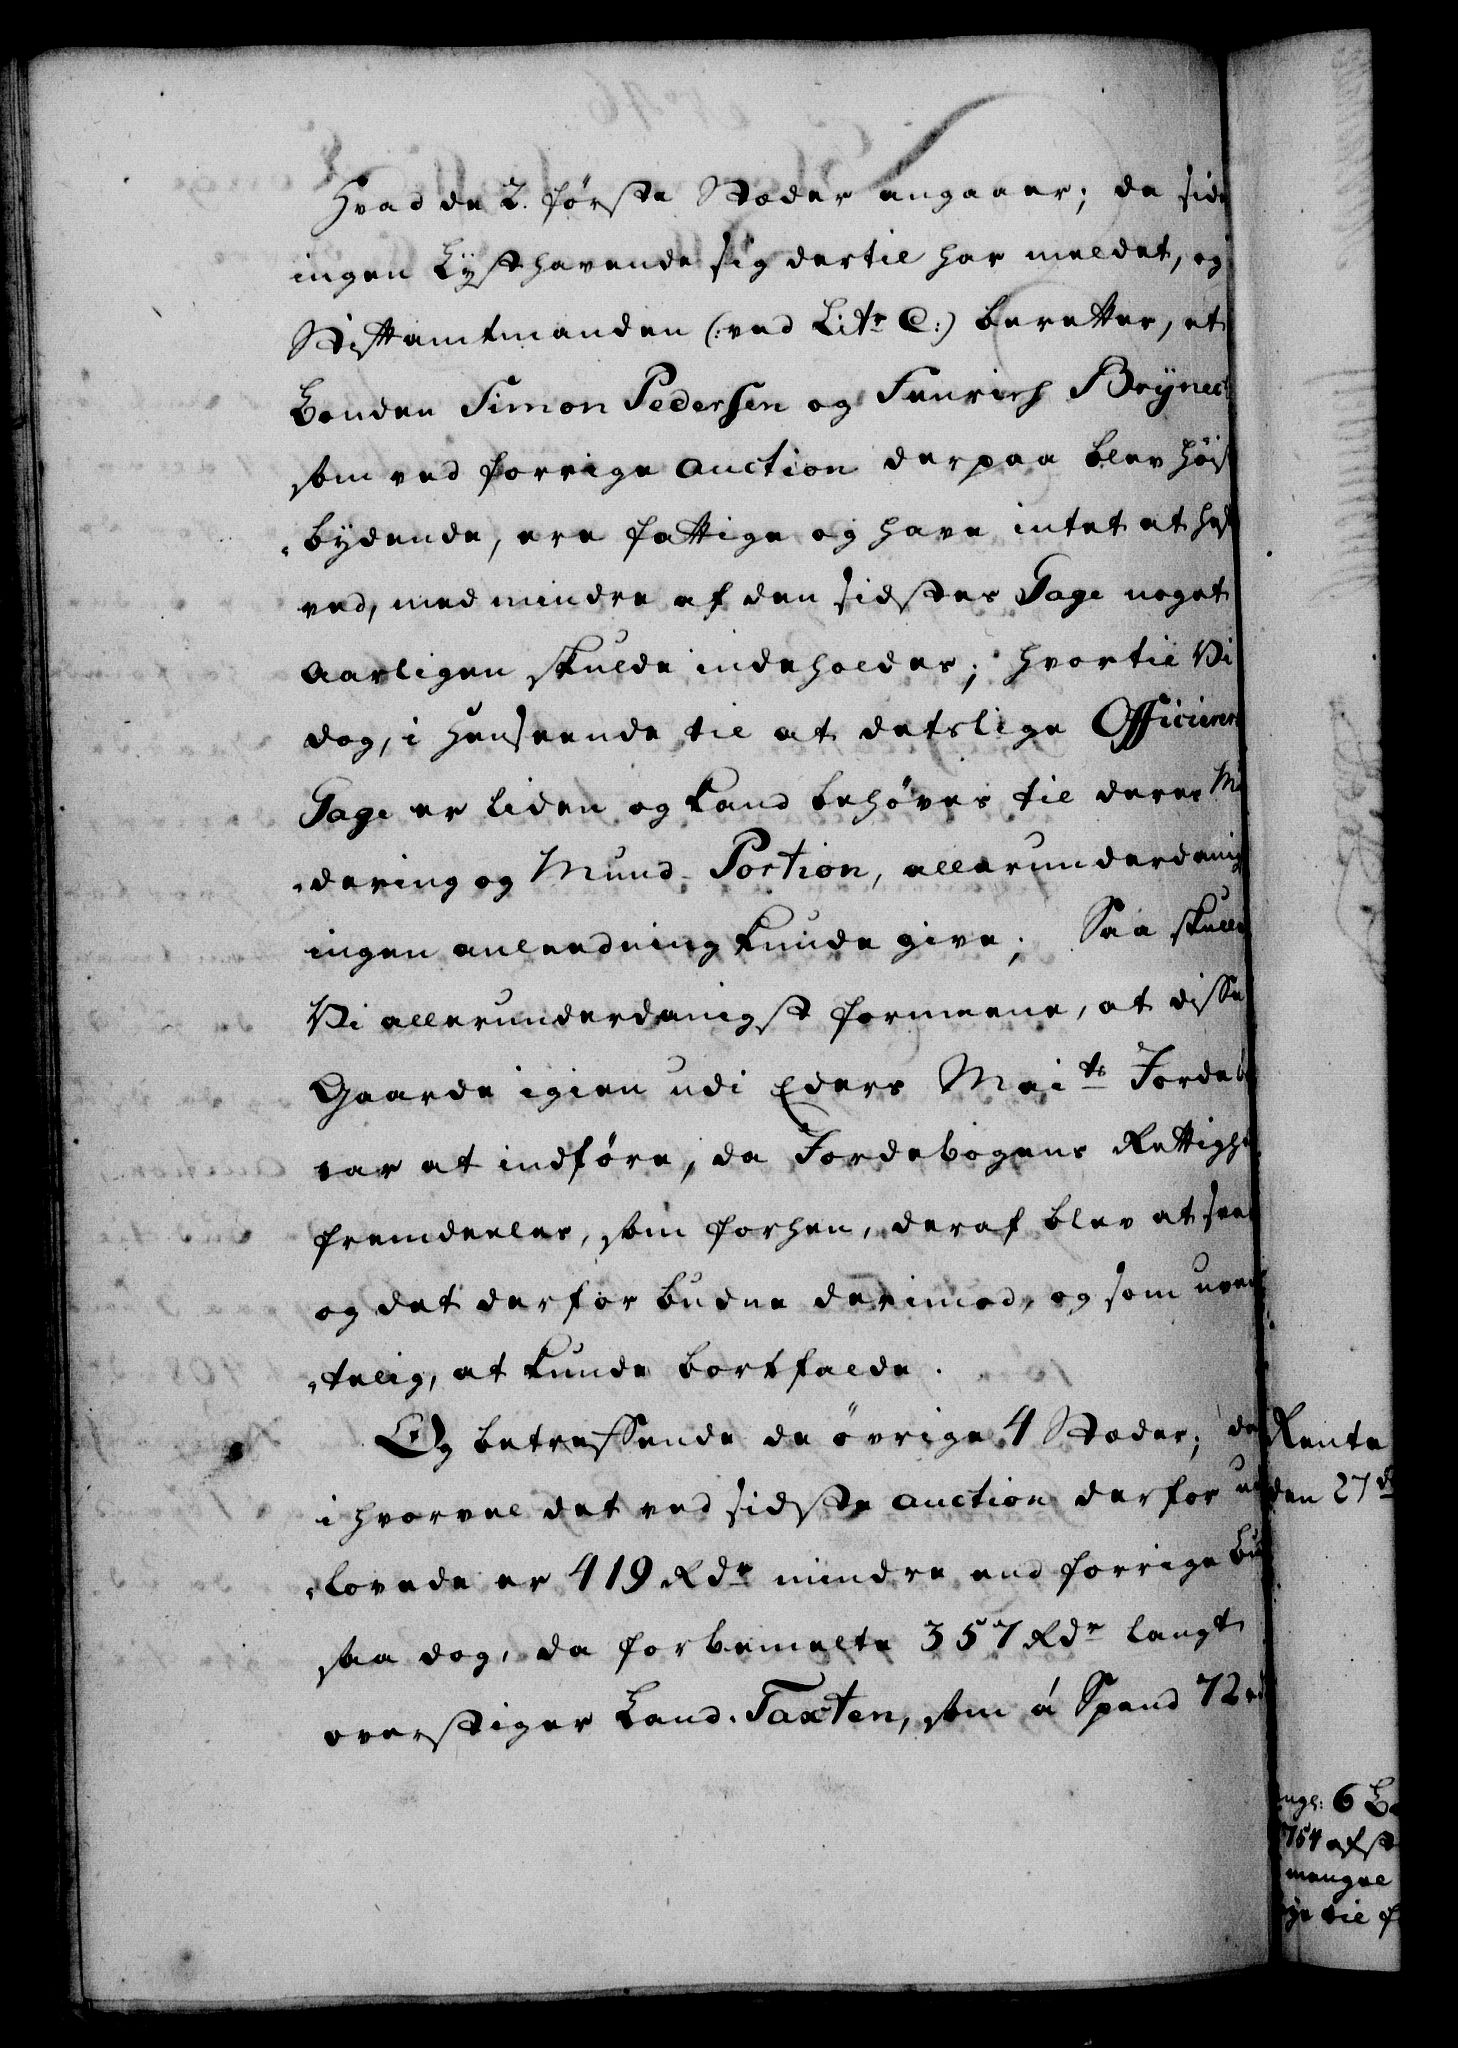 Hvad de 2. første Stæder angaaer; da sid
ingen Lysthavende sig dertil har meldet, og
Stiftamtmanden (:ved Litr C:) beretter, at
Bonden Simon Pedersen og Fenrich Brÿnec
som ved forrige Auction derpaa blev høist
bÿdende, ere fattige og have intet at heft
ved, med mindre af den sidstes Gage noget
aarligen skulde indeholdes; hvortil Vi
dog, i Henseende til at detslige Officierers
Gage er liden og kand behøves til deres M
dering og Mund-Portion, allerunderdanig
ingen anleedning kunde give; Saa skulle
Vi allerunderdanigst formeene, at disse
Gaarde igien udi Eders Mai:ts Jordeb
var at indføre, da Jordebogens Rettigh
fremdeeles, som forhen, deraf blev at svar
og det derfor budne derimod, og som uven
telig, at kunde bortfalde.
Og betreffende de øvrige 4 Stæder; da
ihvorvel det ved sidste Auction derfor ud
lovede er 419 Rdr mindre end forrige bu
saa dog, da forbemelte 357 Rdr langt
overstiger Land-Taxten, som á Spand 72 rd
Rente
den 27de
6
754 afst
mangel
til